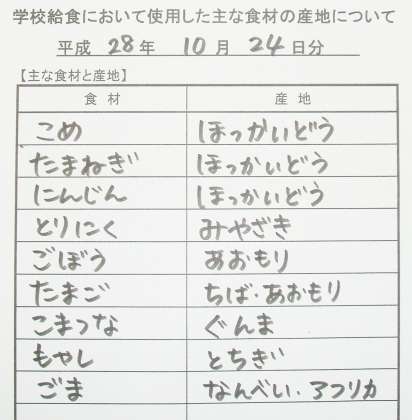 学校給食において使用した主な食材の産地について
平成 28 年 10 月 24 日分
【主な食材と産地】
食 材 産 地
こめ ほっかいどう
たまねぎ ほっかいどう
にんじん ほっかいどう
とりにく みやざき
ごぼう あおもり
たまご ちば・あおもり
こまつな ぐんま
もやし とちぎ
ごま なんべい・アフリカ